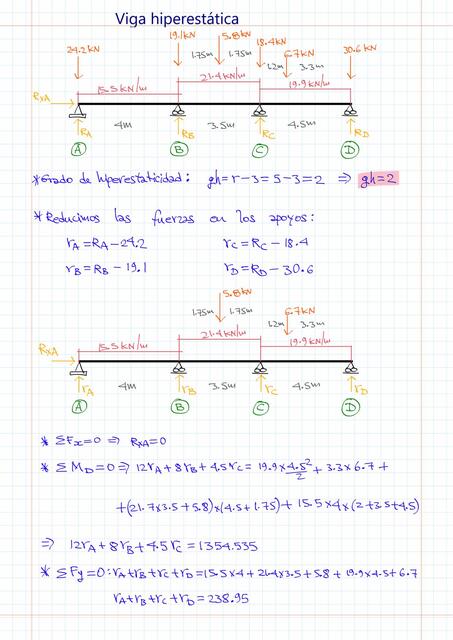 Viga hiperestática
24.2 kN 19.1 kN 5.8 kN 18.4 kN 6.7 kN 30.6 kN
1.75m 1.75m 1.2m 3.3m
15.5 kN/m 21.4 kN/m 19.9 kN/m
RxA
RA RB RC RD
4m 3.5m 4.5m
A B C D
* Grado de hiperestaticidad: gh = r - 3 = 5 - 3 = 2 ⇒ gh = 2
* Reducimos las fuerzas en los apoyos:
rA = RA - 24.2 rC = RC - 18.4
rB = RB - 19.1 rD = RD - 30.6
5.8 kN 6.7 kN
1.75m 1.75m 1.2m 3.3m
15.5 kN/m 21.4 kN/m 19.9 kN/m
RxA
rA rB rC rD
4m 3.5m 4.5m
A B C D
* ΣFx = 0 ⇒ RxA = 0
* ΣMD = 0 ⇒ 12rA + 8rB + 4.5rC = 19.9 × 4.5²/2 + 3.3 × 6.7 +
+ (21.7 × 3.5 + 5.8) × (4.5 + 1.75) + 15.5 × 4 × (2 + 3.5 + 4.5)
⇒ 12rA + 8rB + 4.5rC = 1354.535
* ΣFy = 0: rA + rB + rC + rD = 15.5 × 4 + 21.4 × 3.5 + 5.8 + 19.9 × 4.5 + 6.7
rA + rB + rC + rD = 238.95